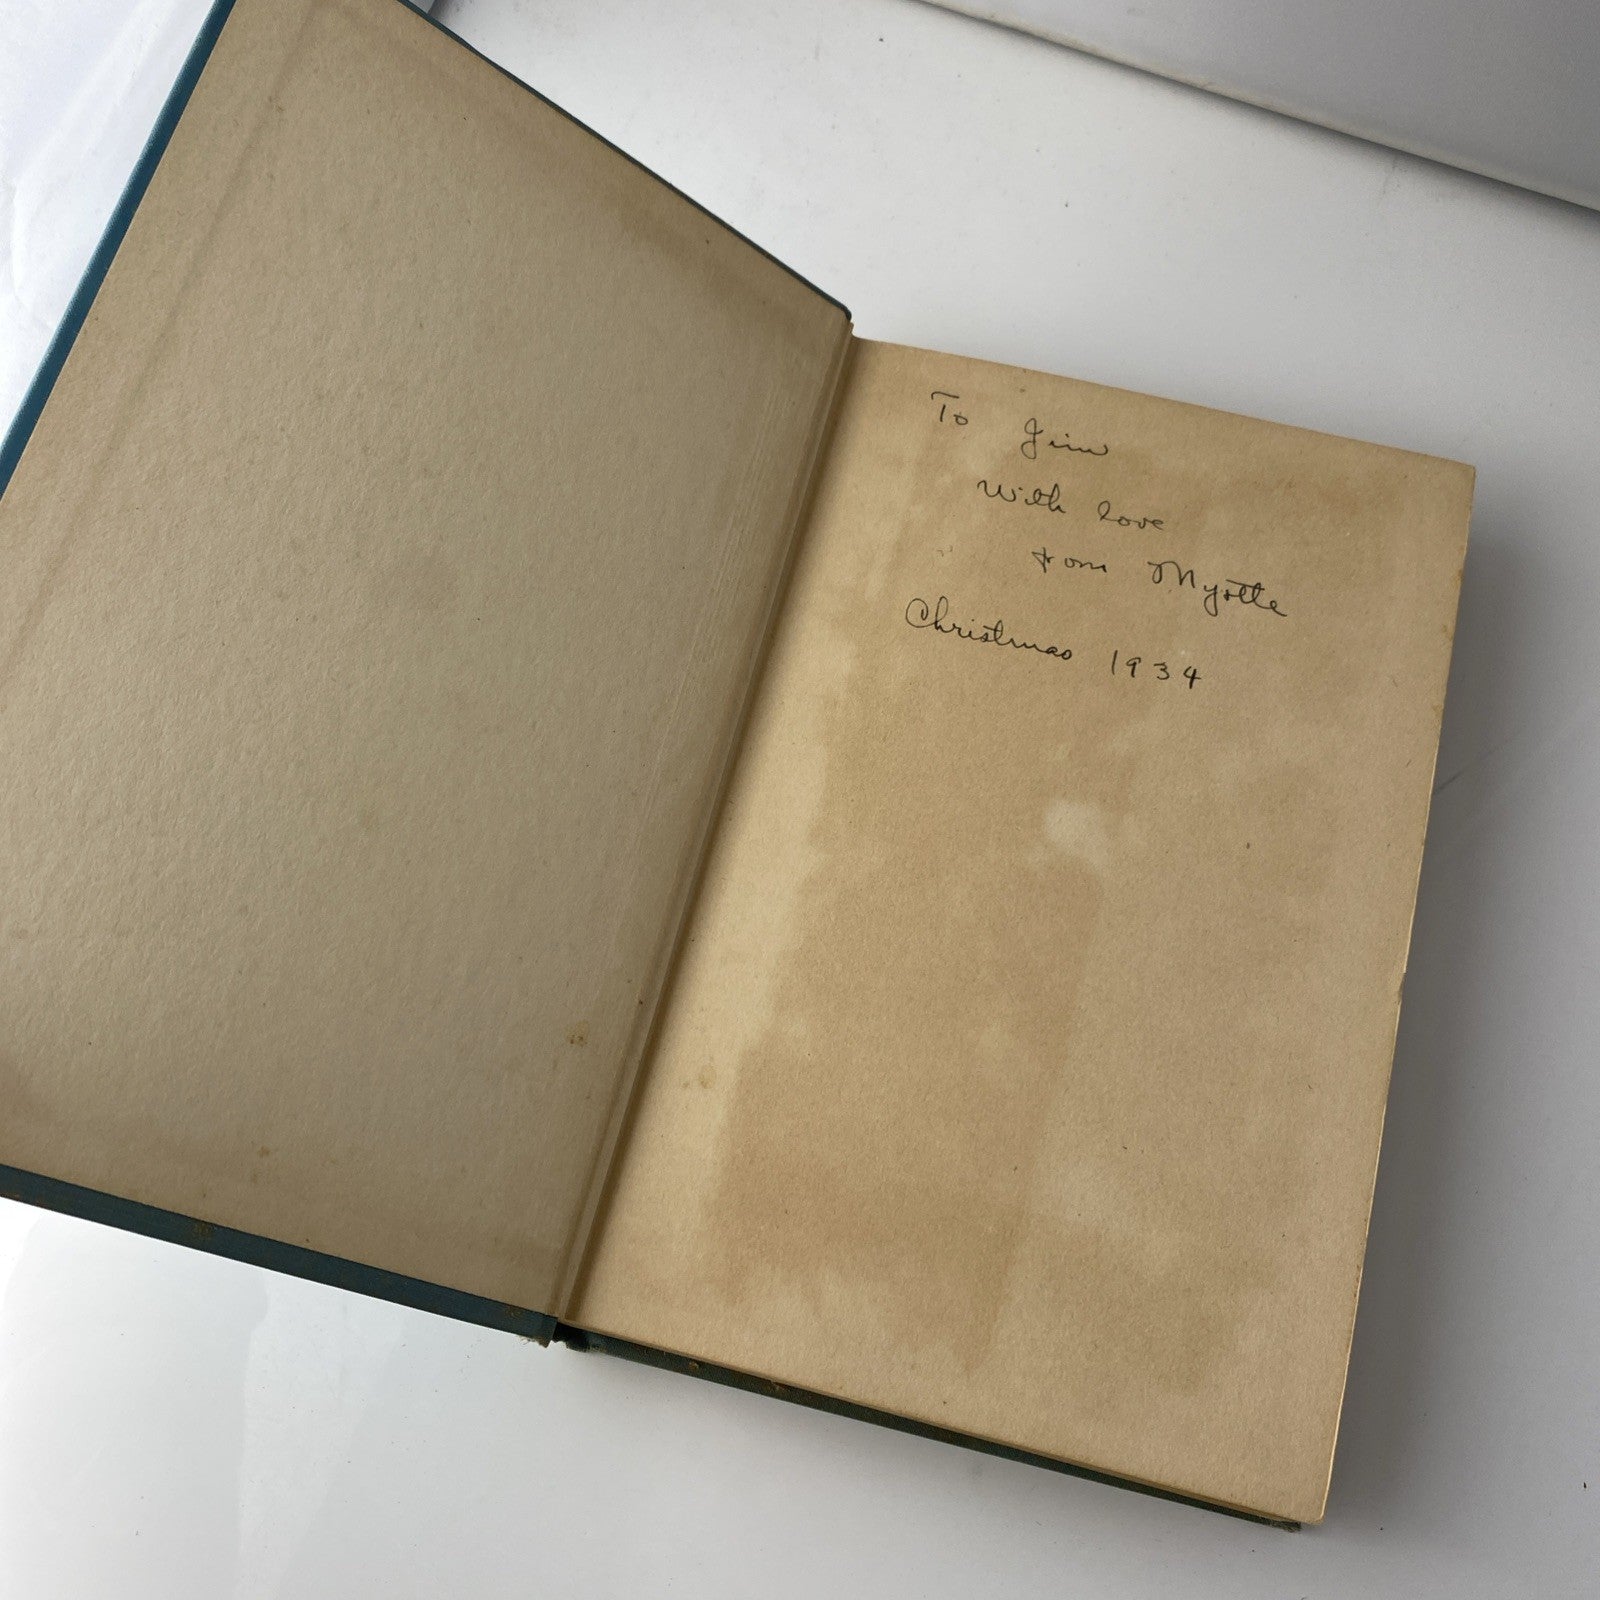 To Jim
With love
from Myrtle
Christmas 1934